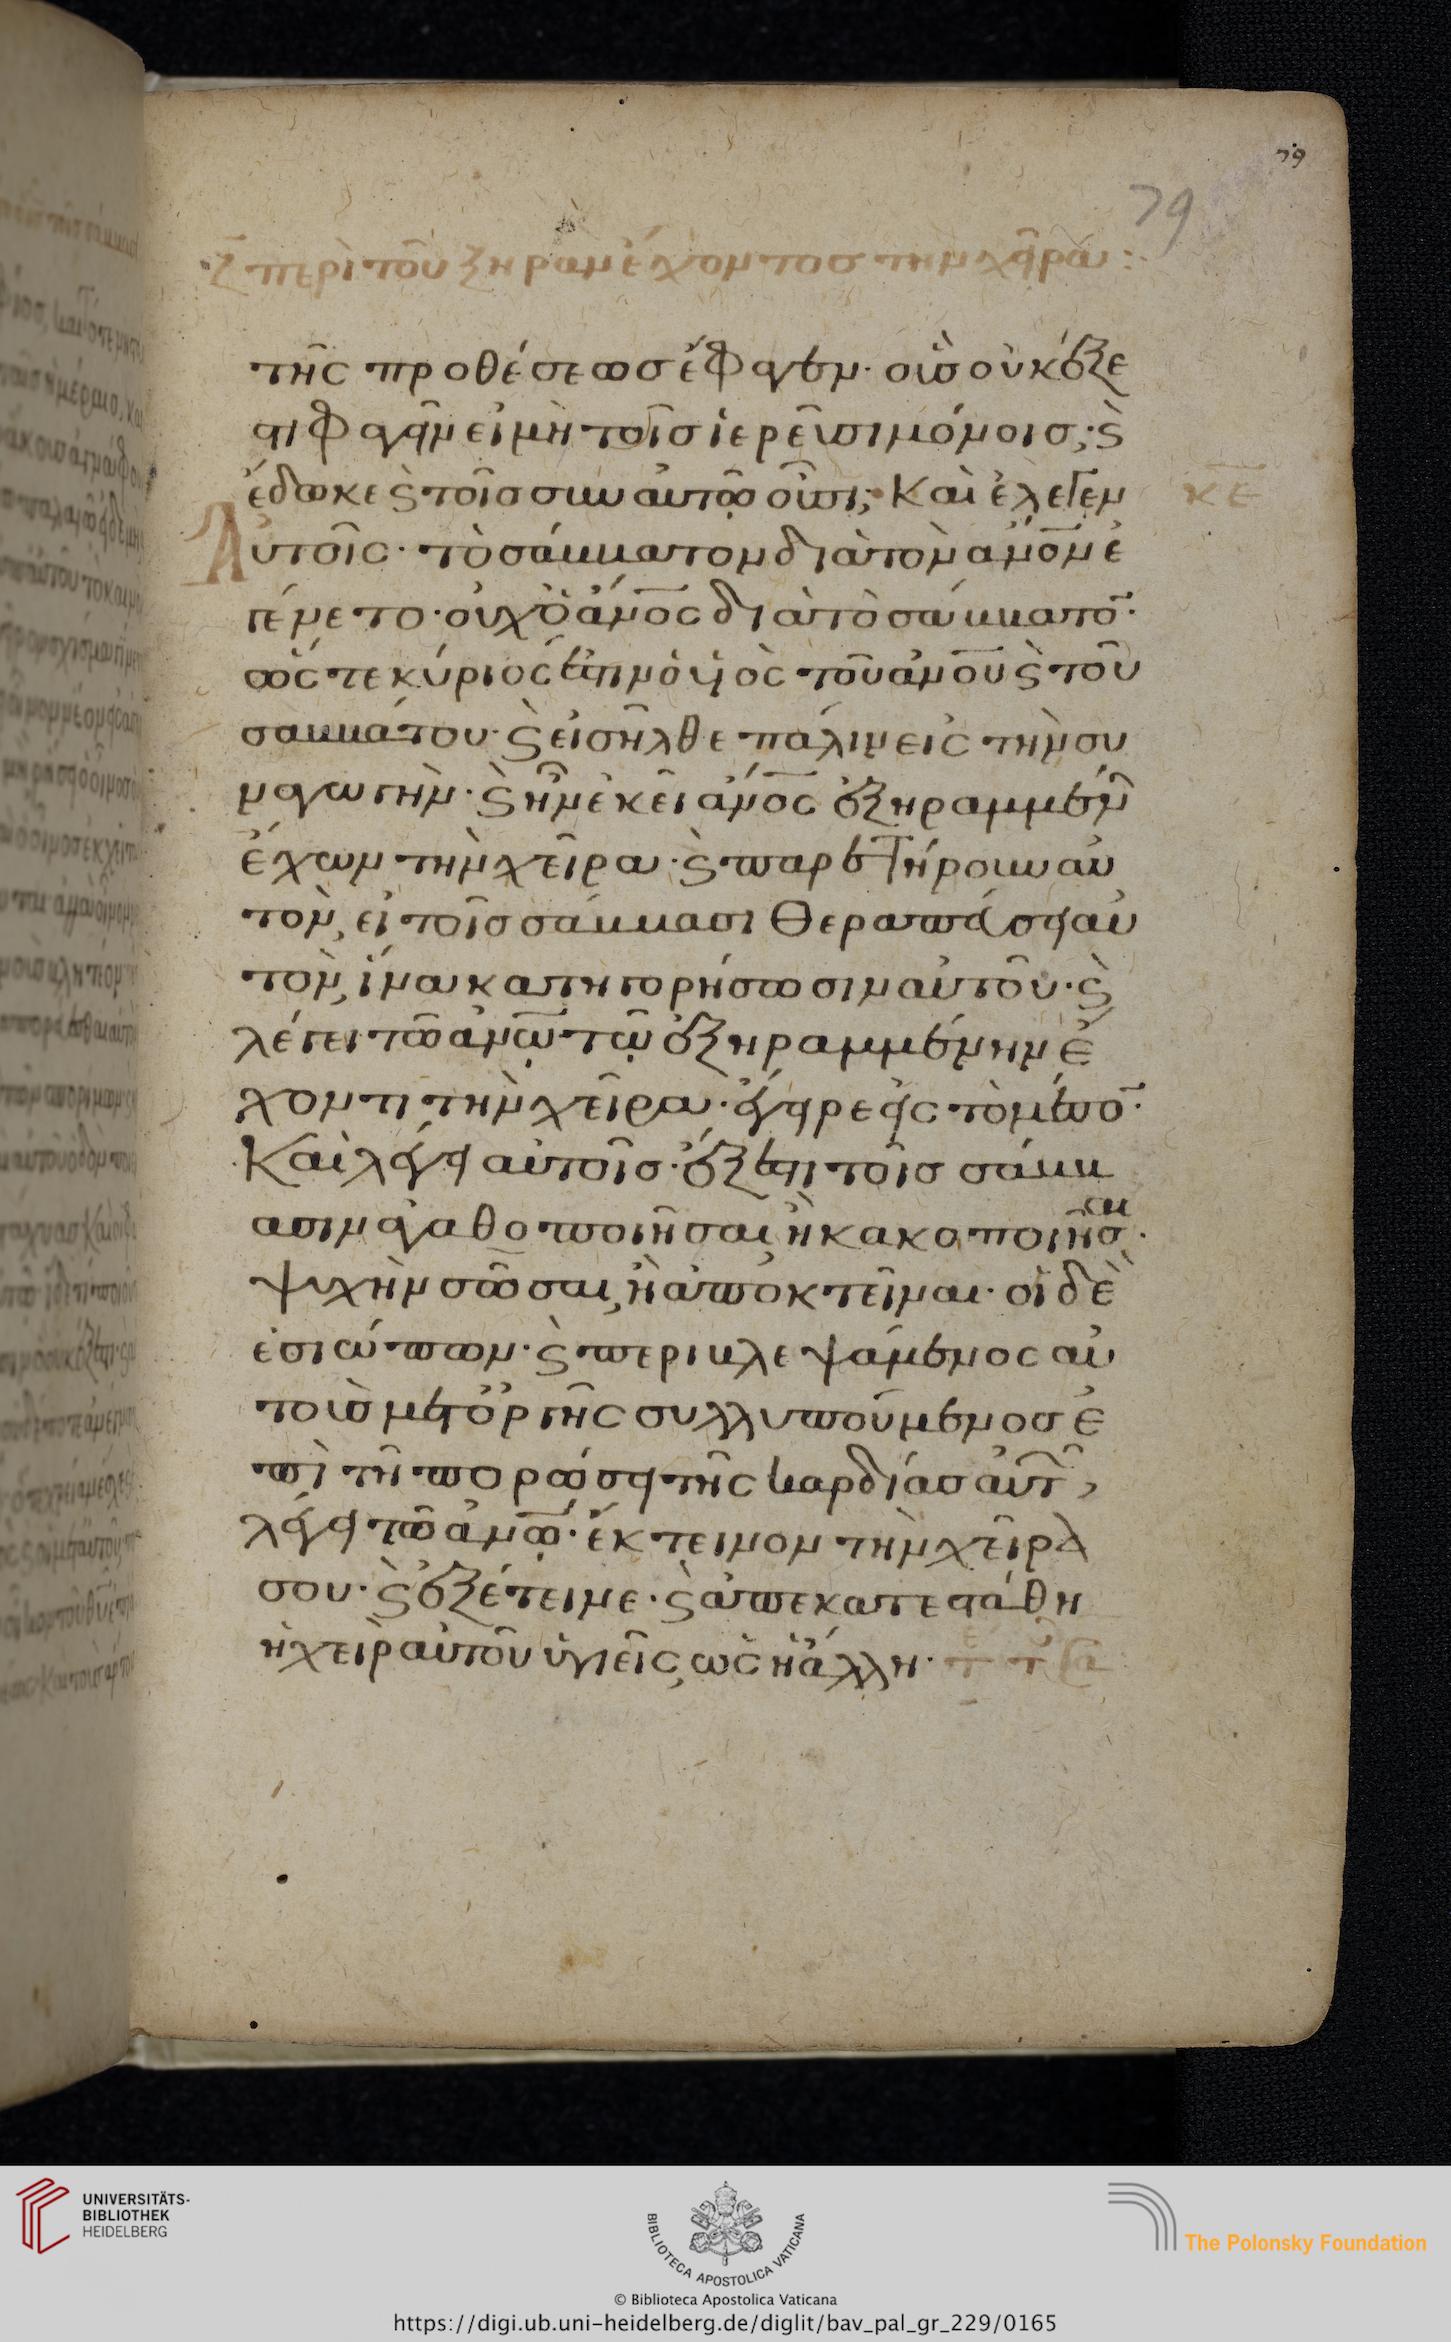 79
79
ζ περὶ τοῦ ξηρὰν ἔχοντος τὴν χεῖρα:
τῆς προθέσεως ἔφαγεν· οὓς οὐκ ἔξε
στι φαγεῖν εἰ μὴ τοῖς ἱερεῦσι μόνοις; ϗ
ἔδωκε ϗ τοῖς σὺν αὐτῷ οὖσι; Καὶ ἔλεγεν κε
Αὐτοῖς· τὸ σάββατον διὰ τὸν ἄνον ἐ
γένετο· οὐχ ὁ ἄνος διὰ τὸ σάββατον·
ὥστε κύριός ἐστιν ὁ υἱὸς τοῦ ἀνου ϗ τοῦ
σαββάτου· ϗ εἰσῆλθε πάλιν εἰς τὴν συ
ναγωγήν· ϗ ἦν ἐκεῖ ἄνος ἐξηραμμένην
ἔχων τὴν χεῖρα· ϗ παρετήρουν αὐ
τὸν, εἰ τοῖς σάββασι θεραπεύσει αὐ
τὸν, ἵνα κατηγορήσωσιν αὐτοῦ· ϗ
λέγει τῶ ἀνῳ τῷ ἐξηραμμένην ἔ
χοντι τὴν χεῖρα· ἔγειρε εἰς τὸ μέσον·
Καὶ λέγει αὐτοῖς· ἔξεστι τοῖς σάββ
ασιν ἀγαθοποιῆσαι, ἢ κακοποιῆσαι·
ψυχὴν σῶσαι, ἢ ἀποκτεῖναι· οἱ δὲ
ἐσιώπων· ϗ περιβλεψάμενος αὐ
τοὺς μετ' ὀργῆς συλλυπούμενος ἐ
πὶ τῆ πορώσει τῆς καρδίας αὐτῶν,
λέγει τῶ ἀνῳ· ἔκτεινον τὴν χεῖρά
σου· ϗ ἐξέτεινε· ϗ ἀπεκατεστάθη
ἡ χεὶρ αὐτοῦ ὑγιεῖς, ὡς ἡ ἄλλη·
UNIVERSITÄTS-
BIBLIOTHEK
HEIDELBERG
BIBLIOTHECA APOSTOLICA VATICANA
The Polonsky Foundation
© Biblioteca Apostolica Vaticana
https://digi.ub.uni-heidelberg.de/diglit/bav_pal_gr_229/0165